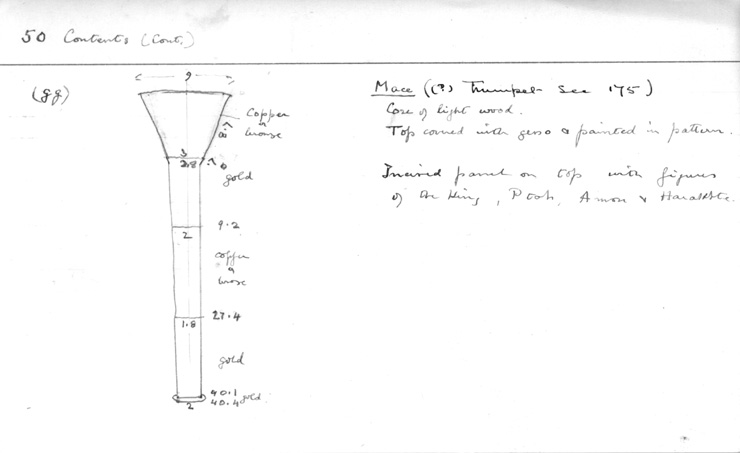 50 Contents (Cont.)
(gg)
9
Copper
or
bronze
8
3
2.8
gold
2
9.2
copper
or
bronze
1.8
27.4
gold
40.1
40.4 gold
2
Mace ((?) Trumpet See 175)
Core of light wood.
Top covered with gesso & painted in pattern.
Incised panel on top with figures
of the King, Ptah, Amon & Harakhte.